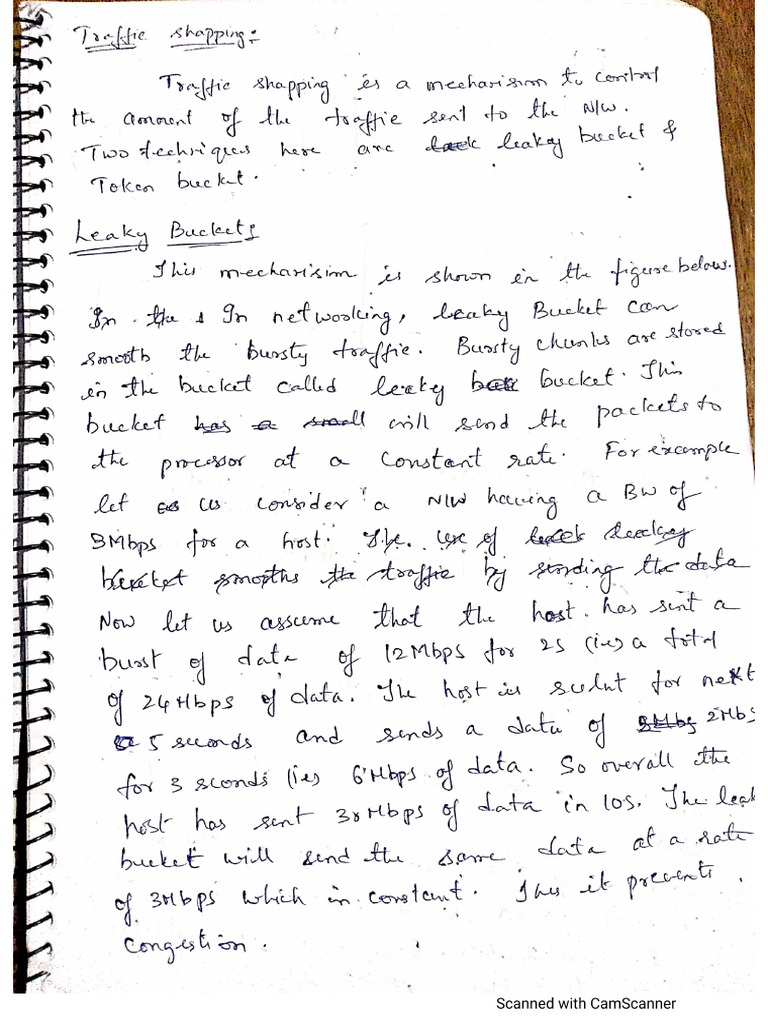 Traffic shapping:
Traffic shapping is a mechanism to control
the amount of the traffic sent to the N/W.
Two techniques here are leaky bucket &
Token bucket.
Leaky Buckets
This mechanisim is shown in the figure below.
In the In networking, leaky Bucket can
smooth the bursty traffic. Bursty chunks are stored
in the bucket called leaky bucket. This
bucket has a small will send the packets to
the processor at a constant rate. For example
let us consider a N/W having a BW of
3Mbps for a host. The use of leaky
bucket smooths the traffic by sending the data
Now let us assume that the host has sent a
burst of data of 12Mbps for 2s (ie) a total
of 24Mbps of data. The host is scilnt for next
5 seconds and sends a data of 2Mbs
for 3 sconds (ie) 6Mbps of data. So overall the
host has sent 30Mbps of data in 10s. The leak
bucket will send the same data at a rate
of 3Mbps which in constant. Thus it prevents
congestion.
Scanned with CamScanner